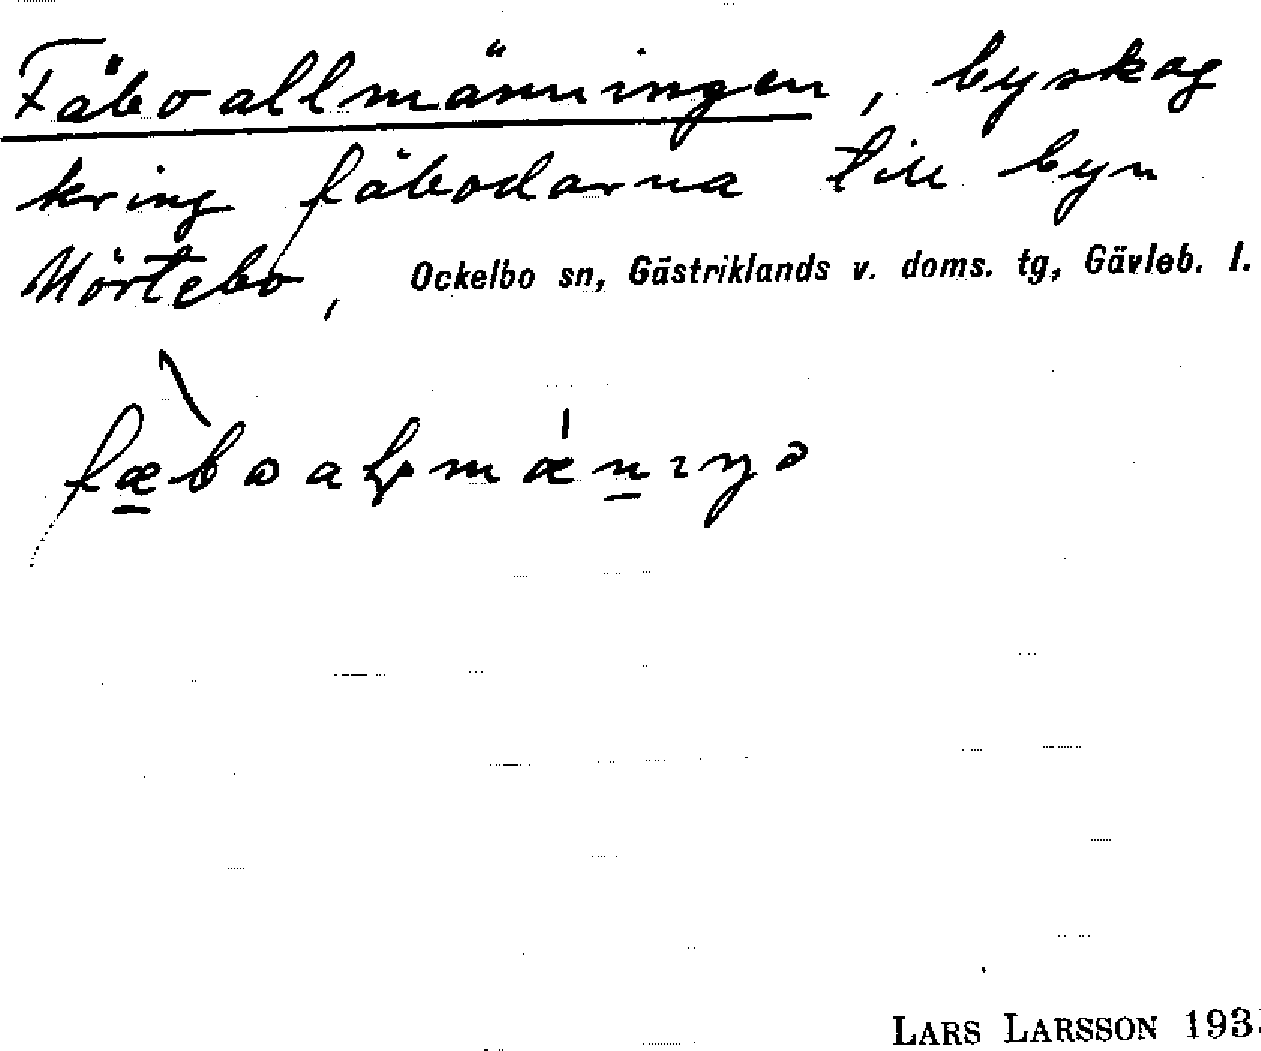 Fäboallmänningen, byskog
kring fäbodarna till byn
Mörtebo, Ockelbo sn, Gästriklands v. doms. tg, Gävleb. l.
LARS LARSSON 193